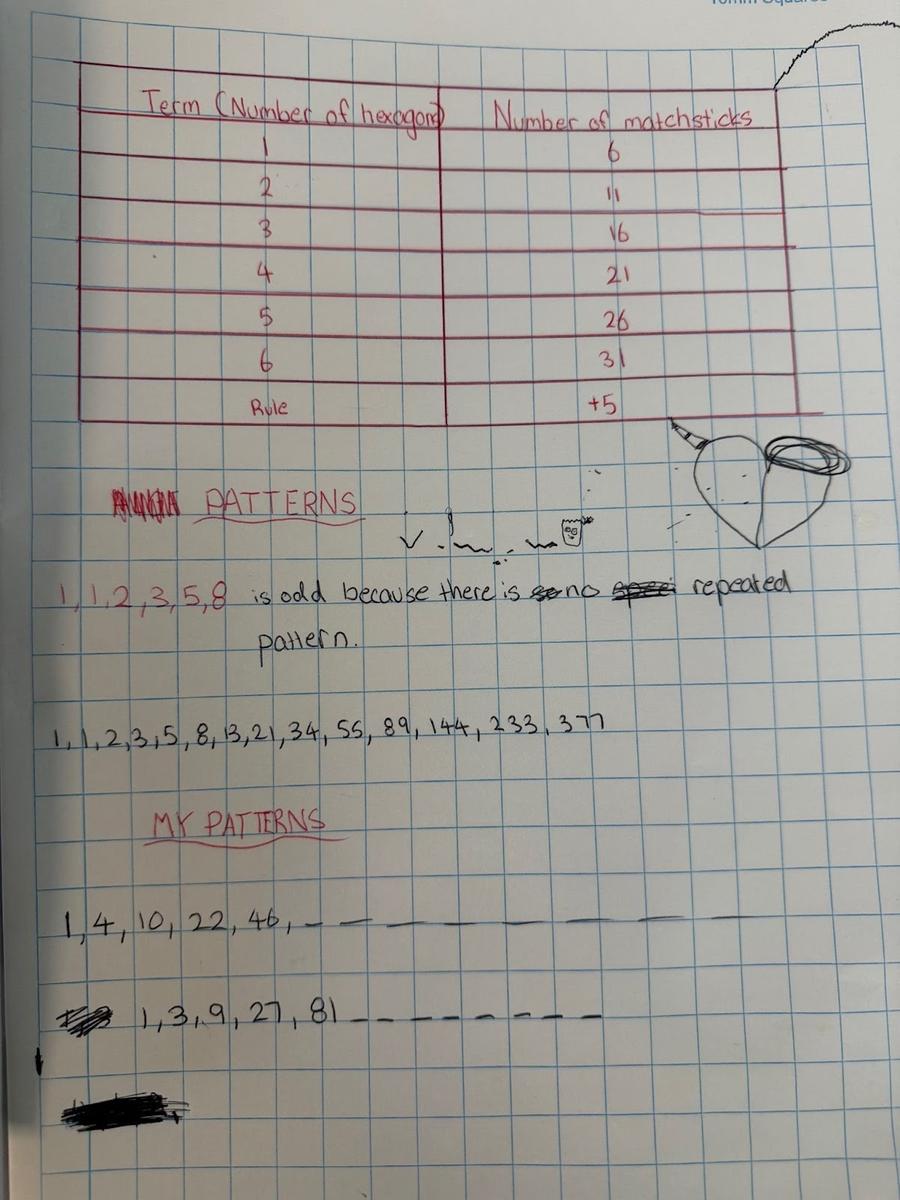 Term (Number of hexagons) Number of matchsticks
1 6
2 11
3 16
4 21
5 26
6 31
Rule +5
PATTERNS
1, 1, 2, 3, 5, 8 is odd because there is no repeated
pattern.
1, 1, 2, 3, 5, 8, 13, 21, 34, 55, 89, 144, 233, 377
MY PATTERNS
1, 4, 10, 22, 46, _ _ _ _ _ _ _
1, 3, 9, 27, 81 _ _ _ _ _ _ _ _